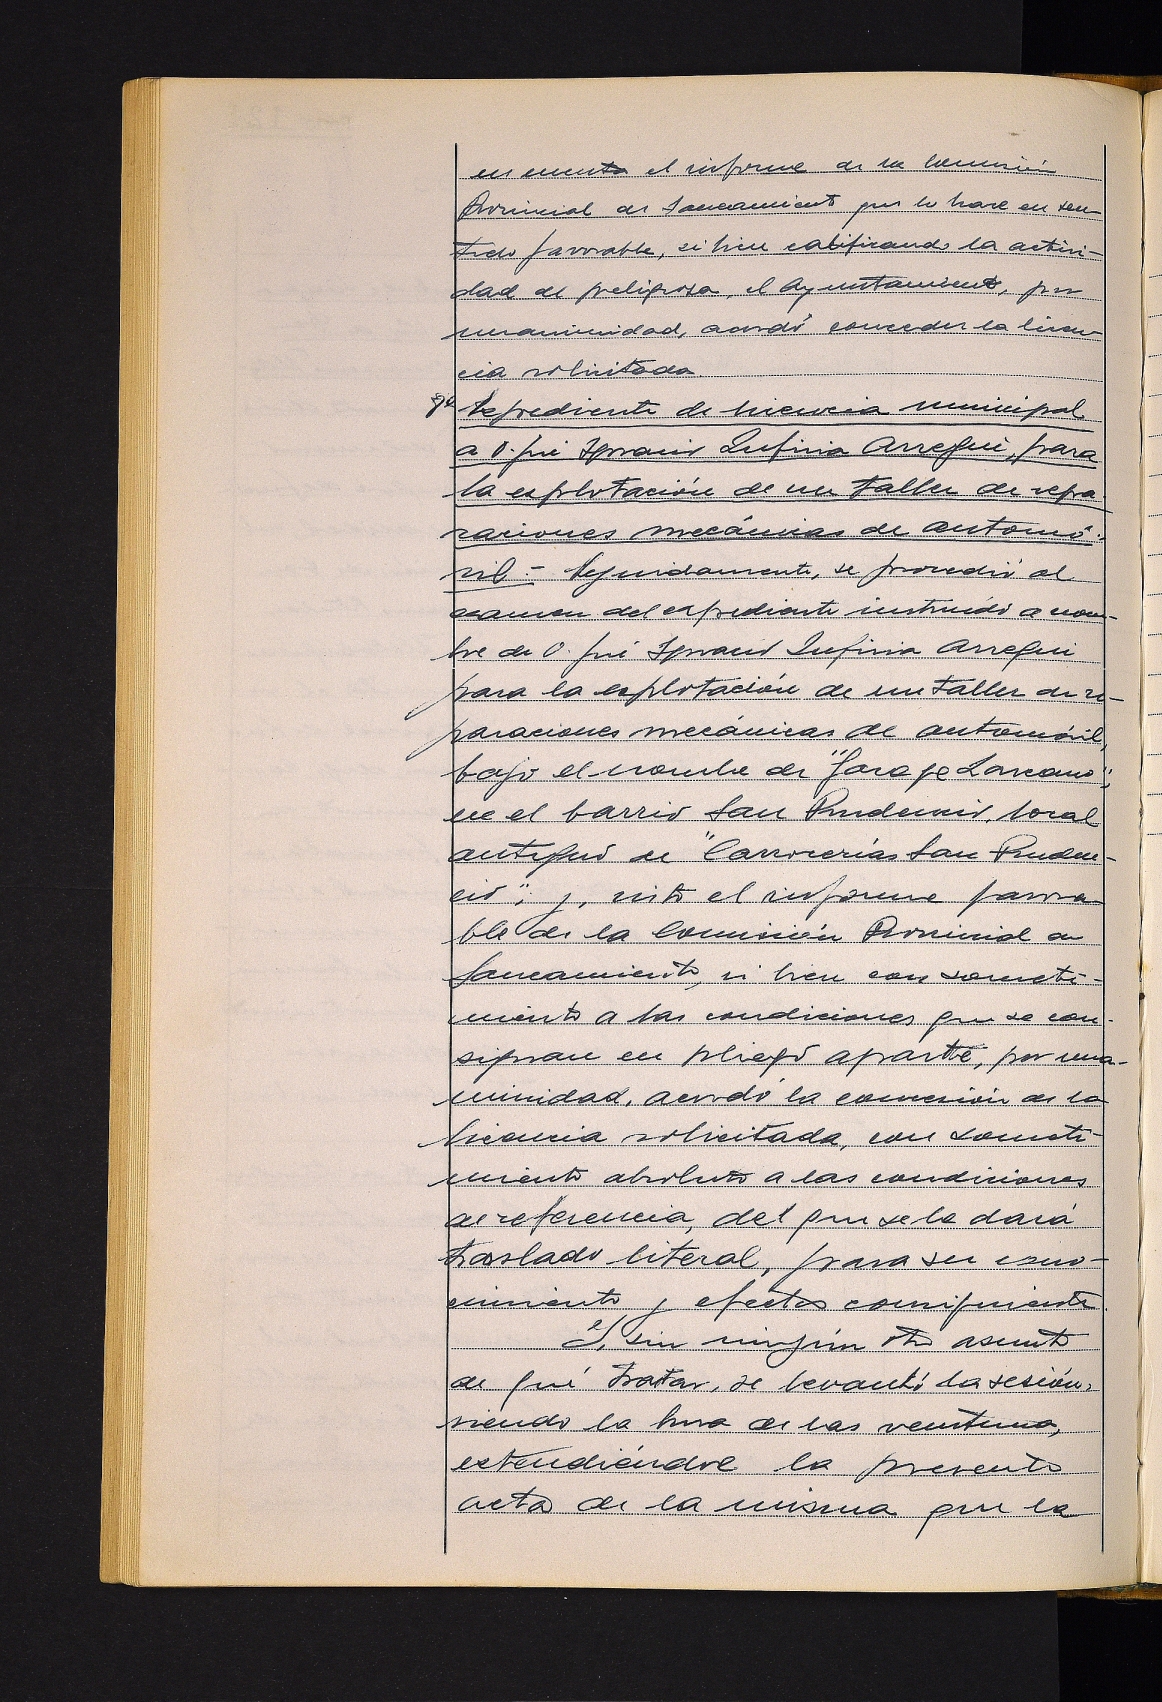 en cuenta el informe de la Comisión
Provincial de Saneamiento que lo hace en sen-
tido favorable, si bien calificando la activi-
dad de peligrosa, el Ayuntamiento, por
unanimidad, acordó conceder la licen-
cia solicitada.
Expediente de licencia municipal
a D. José Ignacio Arregui, para
la explotación de un taller de repa-
raciones mecánicas de automó-
vil.- Seguidamente, se procedió al
examen del expediente instruído a nom-
bre de D. José Ignacio Arregui
para la explotación de un taller de re-
paraciones mecánicas de automóvil,
bajo el nombre de "Garage Lascano",
en el barrio San Prudencio, local
antiguo de "Carrocerías San Pruden-
cio"; y, visto el informe favora-
ble de la Comisión Provincial de
Saneamiento, si bien con someti-
miento a las condiciones que se con-
signan en pliego aparte, por una-
nimidad, acordó la concesión de la
licencia solicitada, con someti-
miento absoluto a las condiciones
de referencia, del que se le dará
traslado literal, para su cono-
cimiento y efectos consiguientes.
Y, sin ningún otro asunto
de qué tratar, se levantó la sesión,
siendo la hora de las veintiuna,
extendiéndose la presente
acta de la misma que la